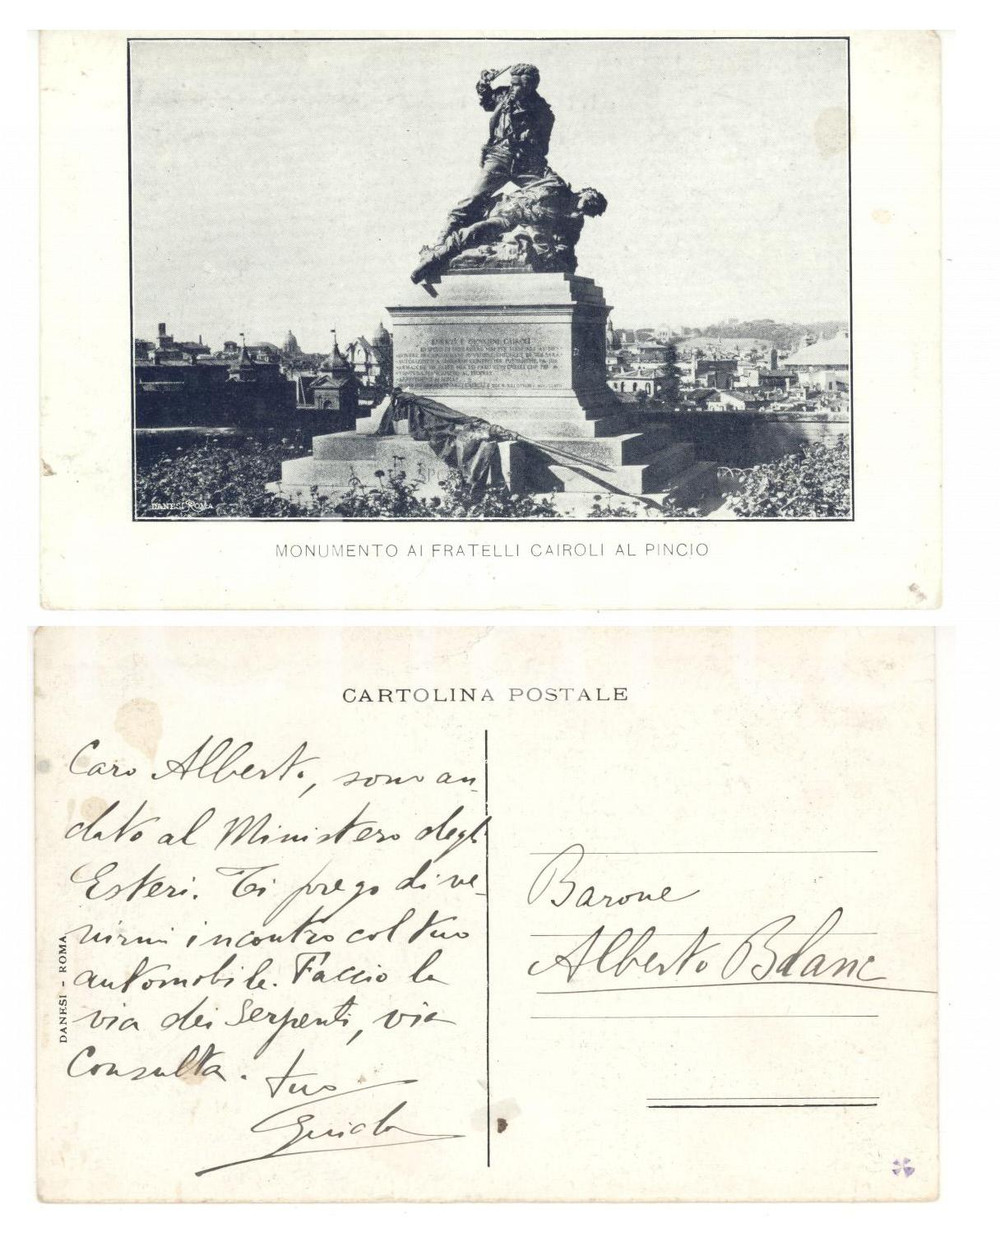 ENRICO E GIOVANNI CAIROLI
DANESI ROMA
MONUMENTO AI FRATELLI CAIROLI AL PINCIO
CARTOLINA POSTALE
Caro Alberto, sono an-
dato al Ministero degli
Esteri. Ti prego di ve-
nirmi incontro col tuo
automobile. Faccio la
via dei Serpenti, via
Consulta. tuo
Guido
DANESI - ROMA
Barone
Alberto Blanc